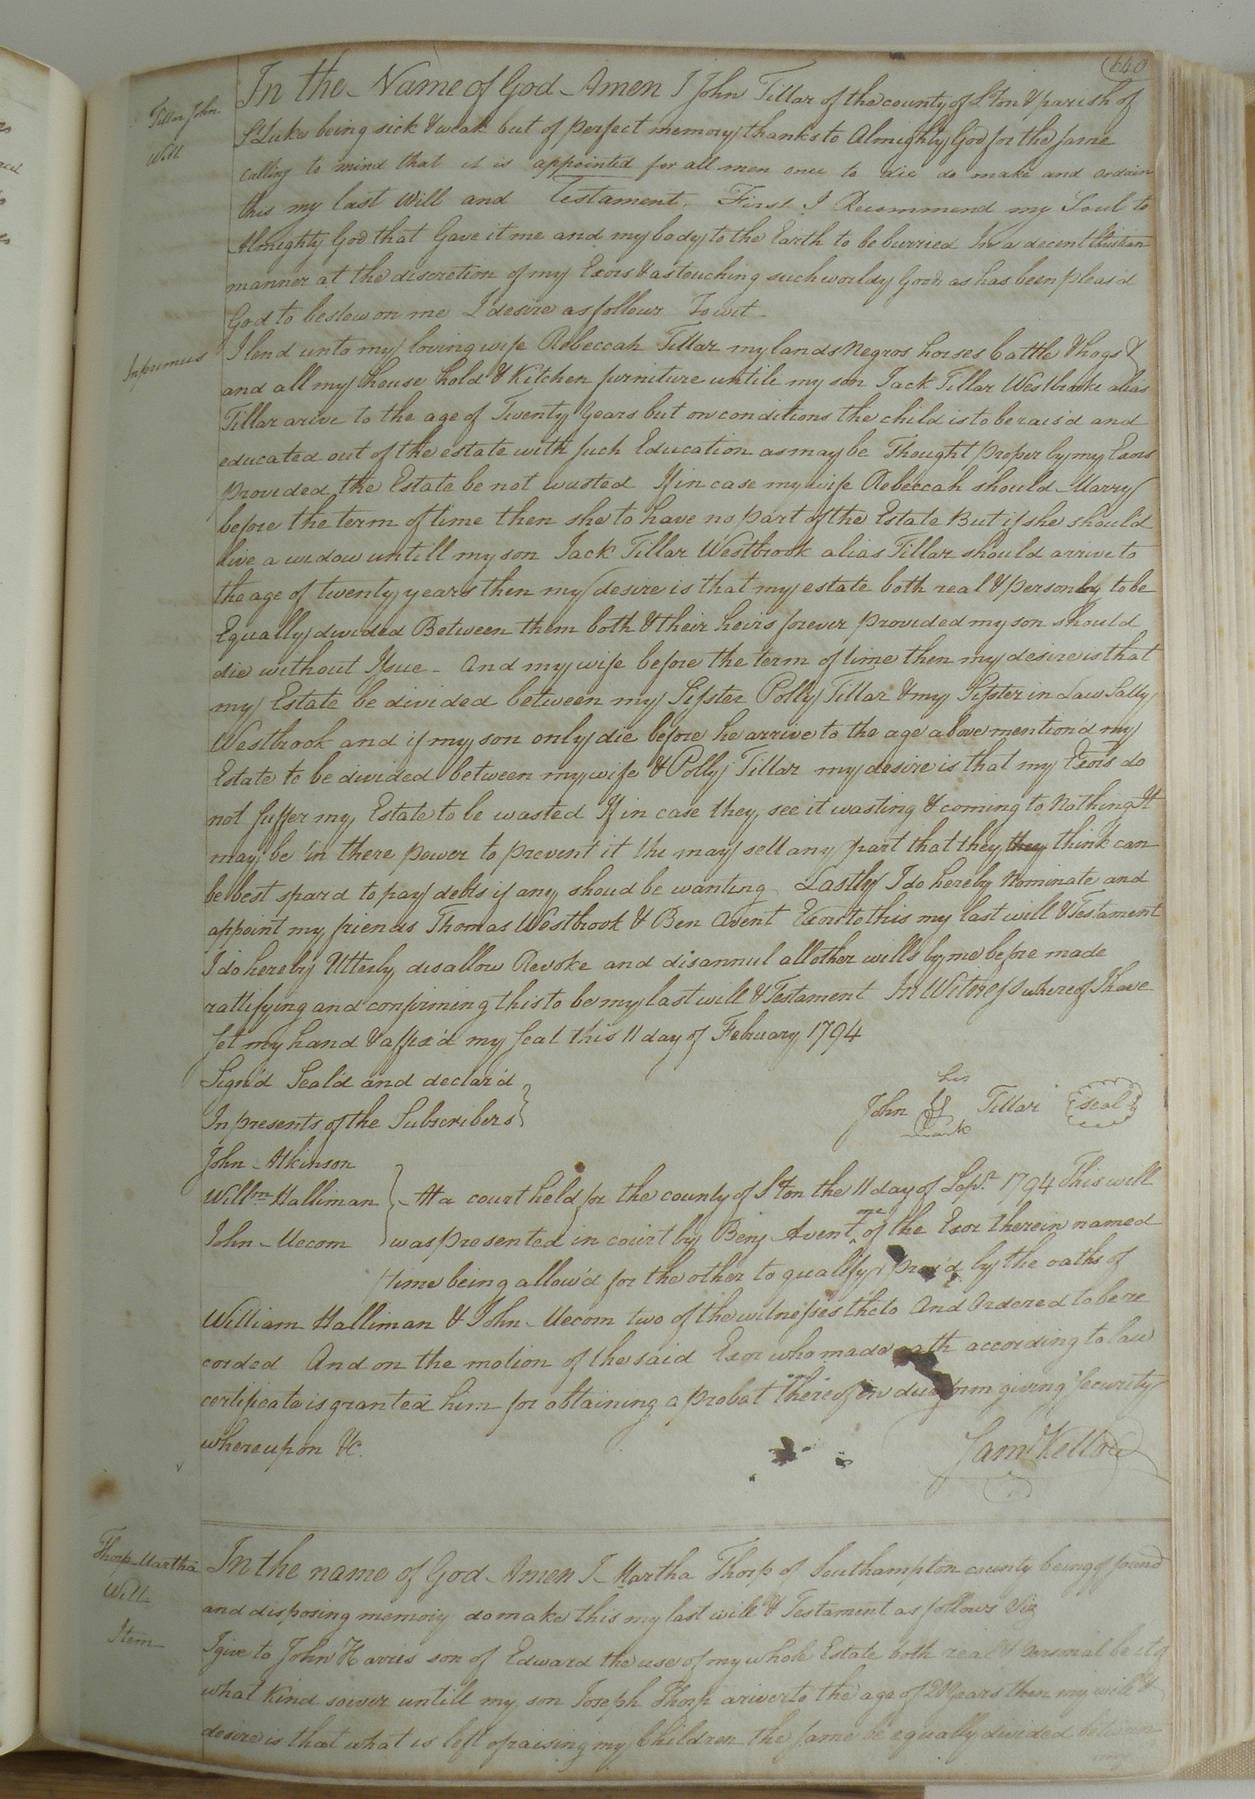 640
Tillar John
Will
In the Name of God Amen I John Tillar of the county of S.ton & parish of
St Luke being sick & weak but of perfect memory thanks to Almighty God for the same
calling to mind that it is appointed for all men once to die do make and ordain
this my last Will and Testament. First I Recommend my Soul to
Almighty God that Gave it me and my body to the Earth to be burried In a decent Christian
manner at the discretion of my Exors & as touching such worldy Goods as has been pleas'd
God to bestow on me I desire as follows To wit
Inprimus
I lend unto my loving wife Rebeccah Tillar my lands Negros horses Cattle & hogs &
and all my house hold & Kitchen furniture untile my son Jack Tillar Westbrooke alias
Tillar arive to the age of Twenty Years but on conditions the child is to be rais'd and
educated out of the estate with such Education as may be Thought proper by my Exors
provided the Estate be not wasted If in case my wife Rebeccah should Marry
before the term of time then she to have no part of the Estate But if she should
live a widow untill my son Jack Tillar Westbrook alias Tillar should arrive to
the age of twenty years then my desire is that my estate both real & personly to be
Equally divided Between them both & their heirs forever provided my son should
die without Issue - And my wife before the term of time then my desire is that
my Estate be divided between my Sister Polly Tillar & my Sister in Law Sally
Westbrook and if my son only die before he arrive to the age above mention'd my
Estate to be divided between my wife & Polly Tillar my desire is that my Exors do
not suffer my Estate to be wasted If in case they see it wasting & coming to Nothing It
may be in there power to prevent it the may sell any part that they they think can
be best spar'd to pay debts if any shoud be wanting Lastly I do hereby Nominate and
appoint my friends Thomas Westbrook & Ben Avent Exors to this my last will & Testament
I do hereby Utterly disallow Revoke and disannul all other wills by me before made
rattifying and confirming this to be my last will & Testament In Witness whereof I have
set my hand & affix'd my seal this 11 day of February 1794
Sign'd Seal'd and declar'd
In presents of the Subscribers
his
John Tillar seal
mark
John Atkinson
Willm Halliman
John Mecom
At a court held for the county of S.ton the 11 day of Sepr. 1794 This will
was presented in court by Benj Avent one of the Exor therein named
time being allow'd for the other to qualify prov'd by the oaths of
William Halliman & John Mecom two of the witnesses theto And Ordered to be re
corded And on the motion of the said Exor who made oath according to law
certificate is granted him for obtaining a probat thereof in due form giving security
whereupon &c.
Saml Kello
Thorp Martha
Will
In the name of God Amen I Martha Thorp of Southampton county being of sound
and disposing memoriy do make this my last will & Testament as follows Viz
Item
I give to John Harris son of Edward the use of my whole Estate both real & personal be it of
what Kind soever untill my son Joseph Thorp ariver to the age of Years then my will &
desire is that what is left of raising my Children the same be equally divided between